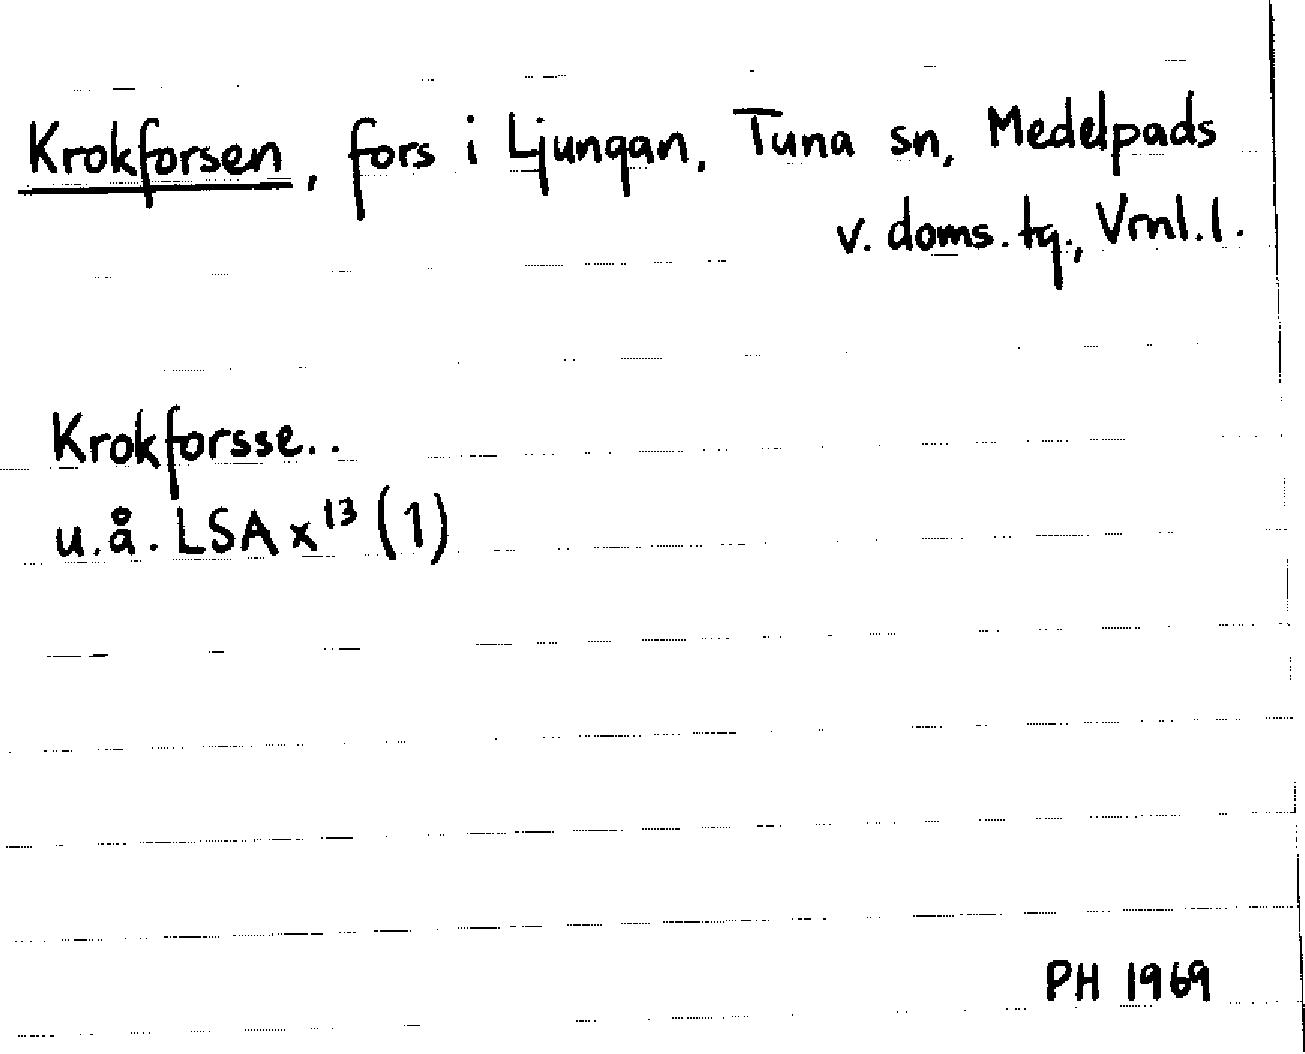 Krokforsen, fors i Ljungan, Tuna sn, Medelpads
v. doms. tg., Vrnl. l.
Krokforsse..
u.å. LSA x¹³ (1)
PH 1969